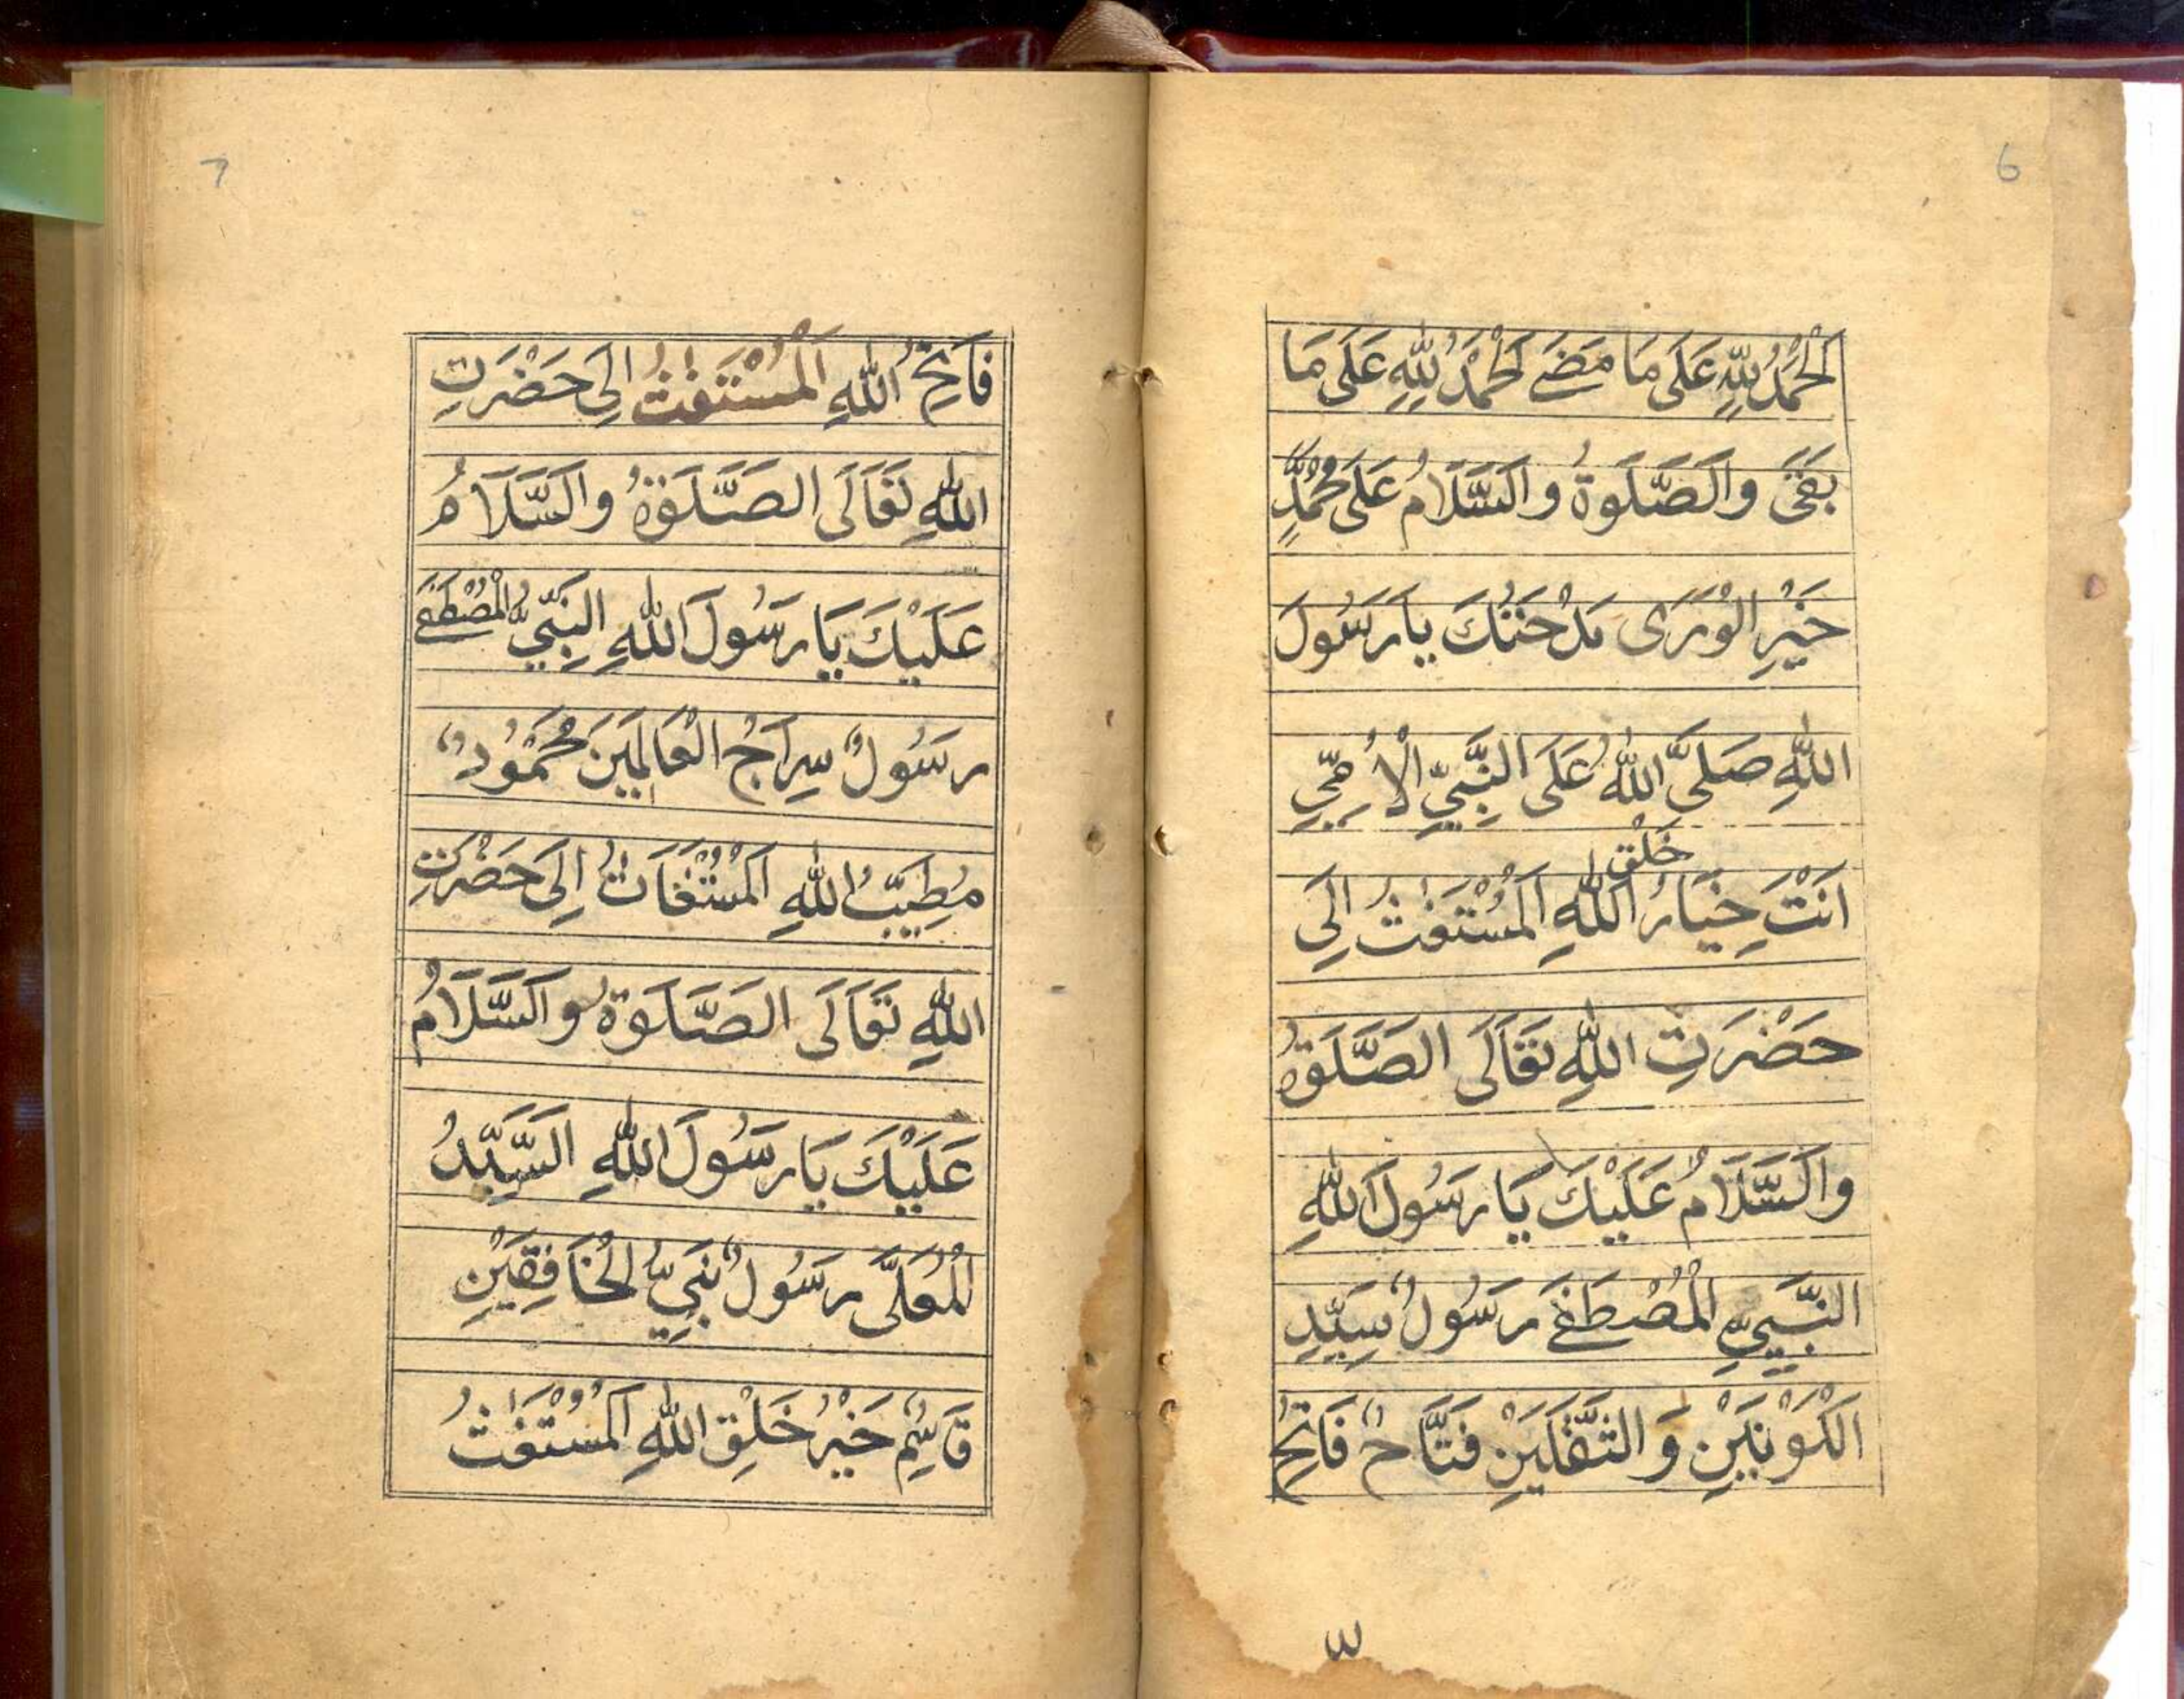 6
اَلْحَمْدُ لِلّٰهِ عَلَى مَا مَضَے اَلْحَمْدُ لِلّٰهِ عَلَى مَا
بَقَىَ وَالصَّلَوةُ وَالسَّلَامُ عَلَى مُحَمَّدٍ
خَيْرِ الْوَرَى مَدْحَتُكَ يَا رَسُولَ
اللّٰهِ صَلَّى اللّٰهُ عَلَى النَّبِيِّ الْاُمِّيِّ
خَلْقِ
اَنْتَ خِيَارُ اللّٰهِ اَلْمُسْتَغٰثُ اِلَى
حَضْرَتِ اللّٰهِ تَعَالَى الصَّلَوةُ
وَالسَّلَامُ عَلَيْكَ يَا رَسُولَ اللّٰهِ
النَّبِيِّ الْمُصْطَفٰے رَسُولٌ سَيِّدِ
الْكَوْنَيْنِ وَ الثَّقَلَيْنِ فَتَّاحٌ فَاتِحُ
٣
7
فَاتِحُ اللّٰهِ اَلْمُسْتَغٰثُ اِلَى حَضْرَتِ
اللّٰهِ تَعَالَى الصَّلَوةُ وَالسَّلَامُ
عَلَيْكَ يَا رَسُولَ اللّٰهِ النَّبِيُّ الْمُصْطَفٰے
رَسُولٌ سِرَاجُ الْعَالَمِيْنَ مَحْمُودٌ
مُطِيَّبُ اللّٰهِ اَلْمُسْتَغَاثُ اِلَى حَضْرَتِ
اللّٰهِ تَعَالَى الصَّلَوةُ وَالسَّلَامُ
عَلَيْكَ يَا رَسُولَ اللّٰهِ السَّيِّدُ
الْمُعَلَّى رَسُولٌ نَبِيُّ الْخَافِقَيْنِ
قَاسِمٌ خَيْرُ خَلْقِ اللّٰهِ اَلْمُسْتَغٰثُ